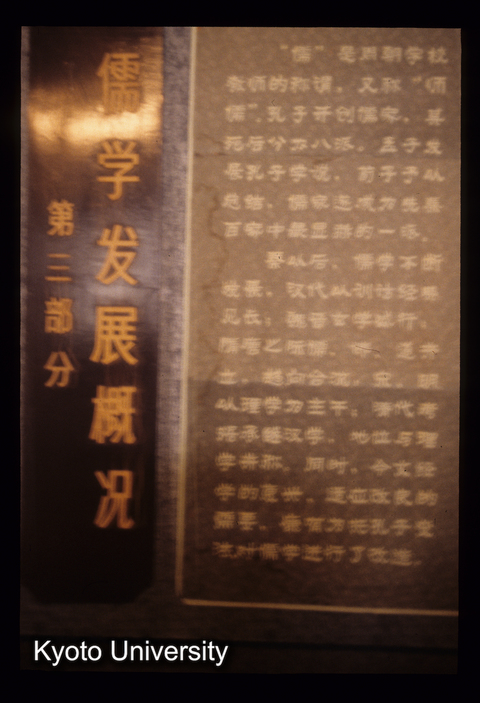 儒学发展概况
第三部分
“儒”是周朝学校
教师的称谓，又称“师
儒”。孔子开创儒家，其
死后分为八派。孟子发
展孔子学说，荀子予以
总结，儒家遂成为先秦
百家中最显赫的一派。
秦以后，儒学不断
发展。汉代以训诂经典
见长；魏晋玄学盛行；
隋唐之际儒、道并
立，趋向合流；宋、明
以理学为主干；清代考
据承继汉学，地位与理
学并称。同时，今文经
学的复兴，适应改良的
需要，康有为托孔子变
法对儒学进行了改造。
Kyoto University